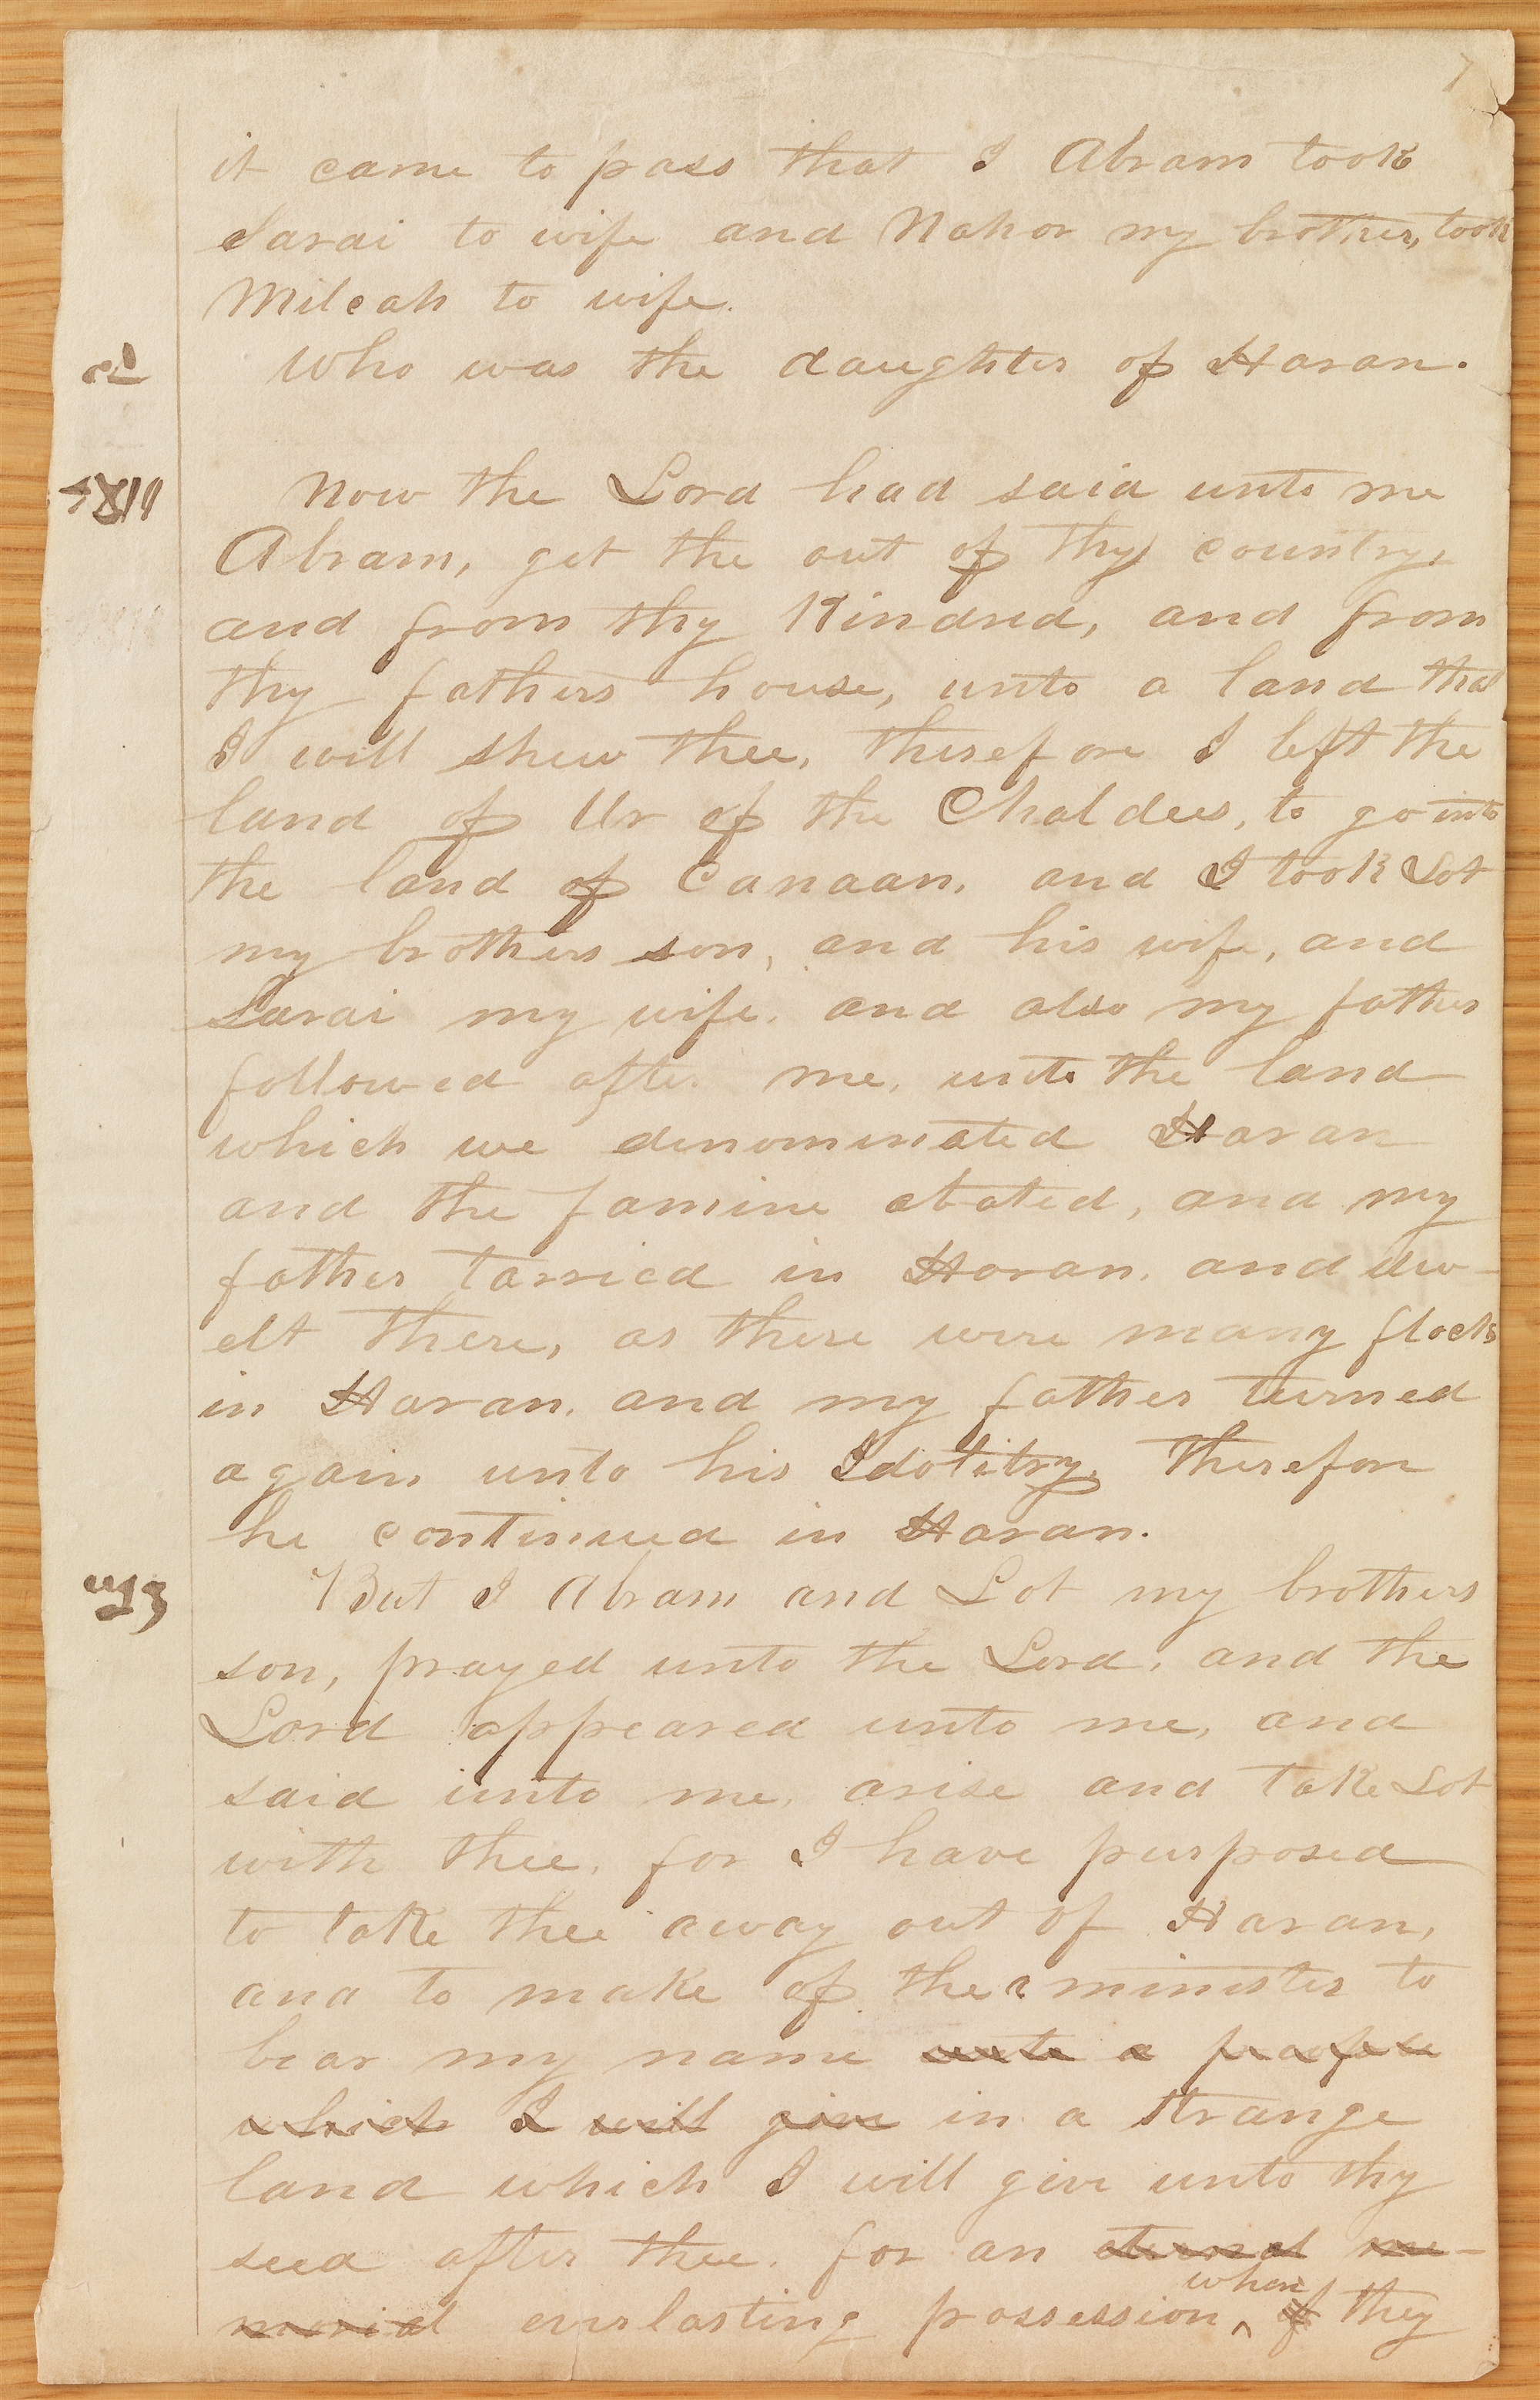 7
it came to pass that I Abram took
Sarai to wife and Nahor my brother, took
Milcah to wife.
Who was the daughter of Haran.
Now the Lord had said unto me
Abram, get the out of thy country,
and from thy Kindred, and from
thy fathers house, unto a land that
I will shew thee, therefore I left the
land of Ur of the Chaldees, to go into
the land of Canaan, and I took Lot
my brothers son, and his wife, and
Sarai my wife, and also my father
followed after me, unto the land
which we denominated Haran
and the famine abated, and my
father tarried in Haran, and dw-
elt there, as there were many flocks
in Haran, and my father turned
again unto his Idolitry, Therefore
he continued in Haran.
But I Abram and Lot my brothers
son, prayed unto the Lord, and the
Lord appeared unto me, and
said unto me, arise and take Lot
with thee, for I have purposed
to take thee away out of Haran,
and to make of thee a minister to
bear my name unto a people
which I will give in a strange
land which I will give unto thy
seed after thee, for an eternal me-
morial everlasting possession when if they